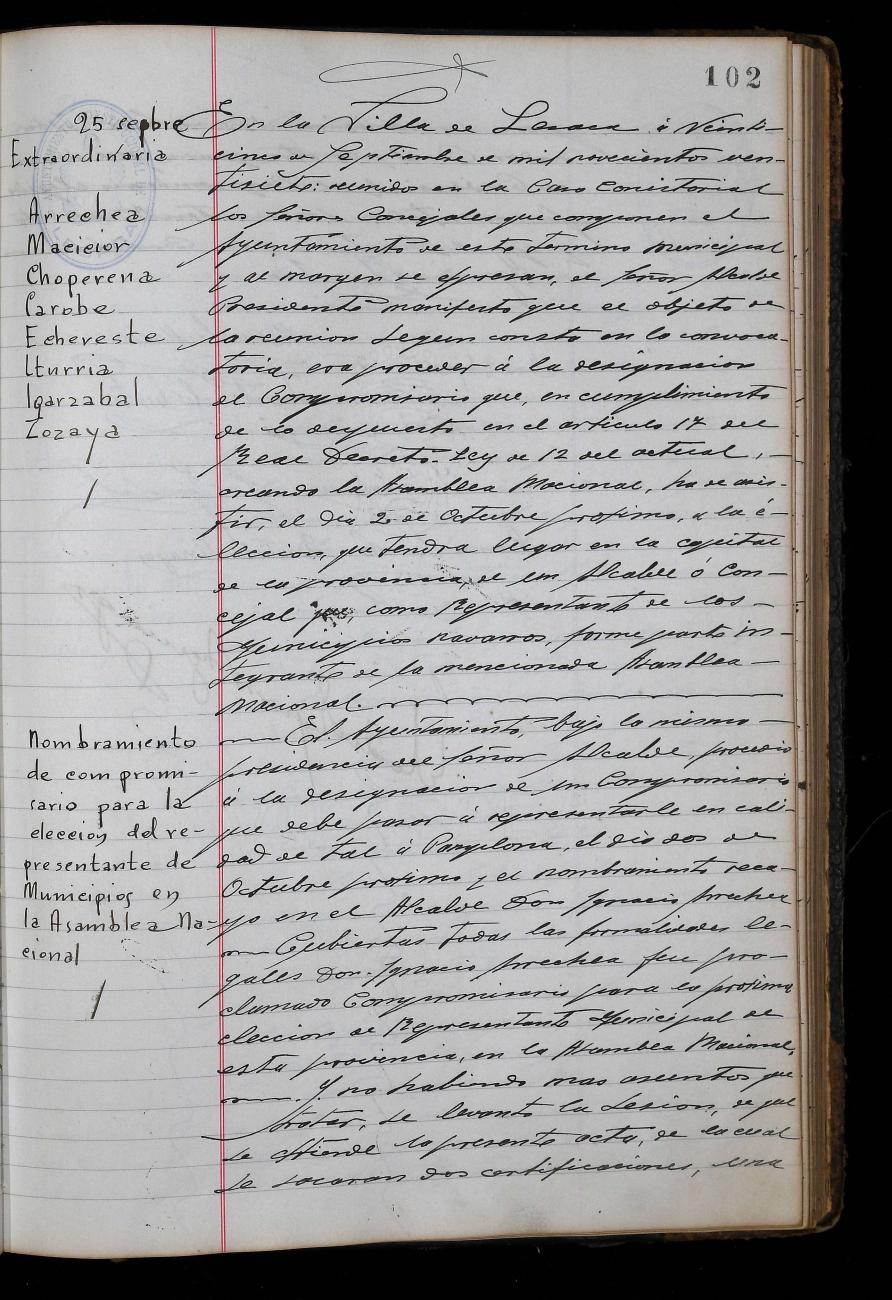 102
25 sepbre
Extraordinaria
Arrechea
Macicior
Choperena
Carobe
Echereste
Iturria
Igarzabal
Zozaya
En la Villa de Lesaca á Veinti-
cinco de Septiembre de mil novecientos vein-
tisiete: reunidos en la Casa Consistorial
los Señores Concejales que componen el
Ayuntamiento de este termino municipal
y al margen se expresan, el Señor Alcalde
Presidente manifestó que el objeto de
la reunion segun consta en la convoca-
toria, era proceder á la designacion
de Compromisario que, en cumplimiento
de lo dispuesto en el articulo 17 del
Real Decreto-Ley de 12 del actual,
creando la Asamblea Nacional, ha de asis-
tir, el dia 2 de Octubre proximo, a la é-
leccion, que tendra lugar en la capital
de la provincia, de un Alcalde ó Con-
cejal que, como Representante de los
Municipios navarros, forme parte in-
tegrante de la mencionada Asamblea
Nacional.
Nombramiento
de compromi-
sario para la
eleccion del re-
presentante de
Municipios en
la Asamblea Na-
cional
El Ayuntamiento, bajo la misma
presidencia del Señor Alcalde, procedio
á la designacion de un Compromisario
que debe pasar á representarle en cali-
dad de tal á Pamplona, el dia dos de
Octubre proximo y el nombramiento reca-
yo en el Alcalde Don Ignacio Arrechea
Cubiertas todas las formalidades le-
gales Don Ignacio Arrechea fue pro-
clamado Compromisario para la proxima
eleccion de Representante Municipal de
esta provincia, en la Asamblea Nacional.
Y no habiendo mas asuntos que
tratar, se levanto la sesion, de que
se estiende la presente acta, de la cual
se sacaran dos certificaciones, una